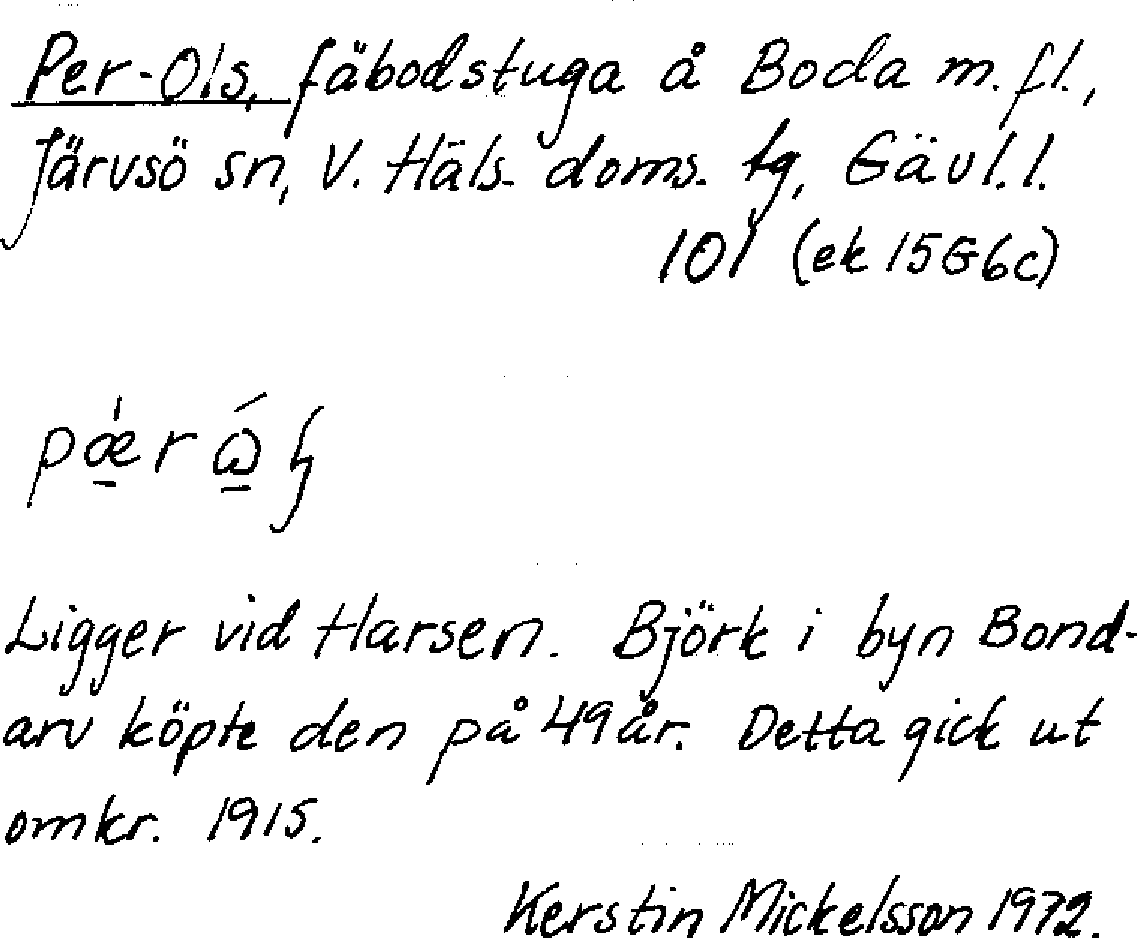 Per-Ols, fäbodstuga å Boda m.fl.,
Järvsö sn, V. Häls. doms. tg, Gävl.l.
101 (ek 15G6c)
Ligger vid Harsen. Björk i byn Bond-
arv köpte den på 49 år. Detta gick ut
omkr. 1915.
Kerstin Mickelsson 1972.